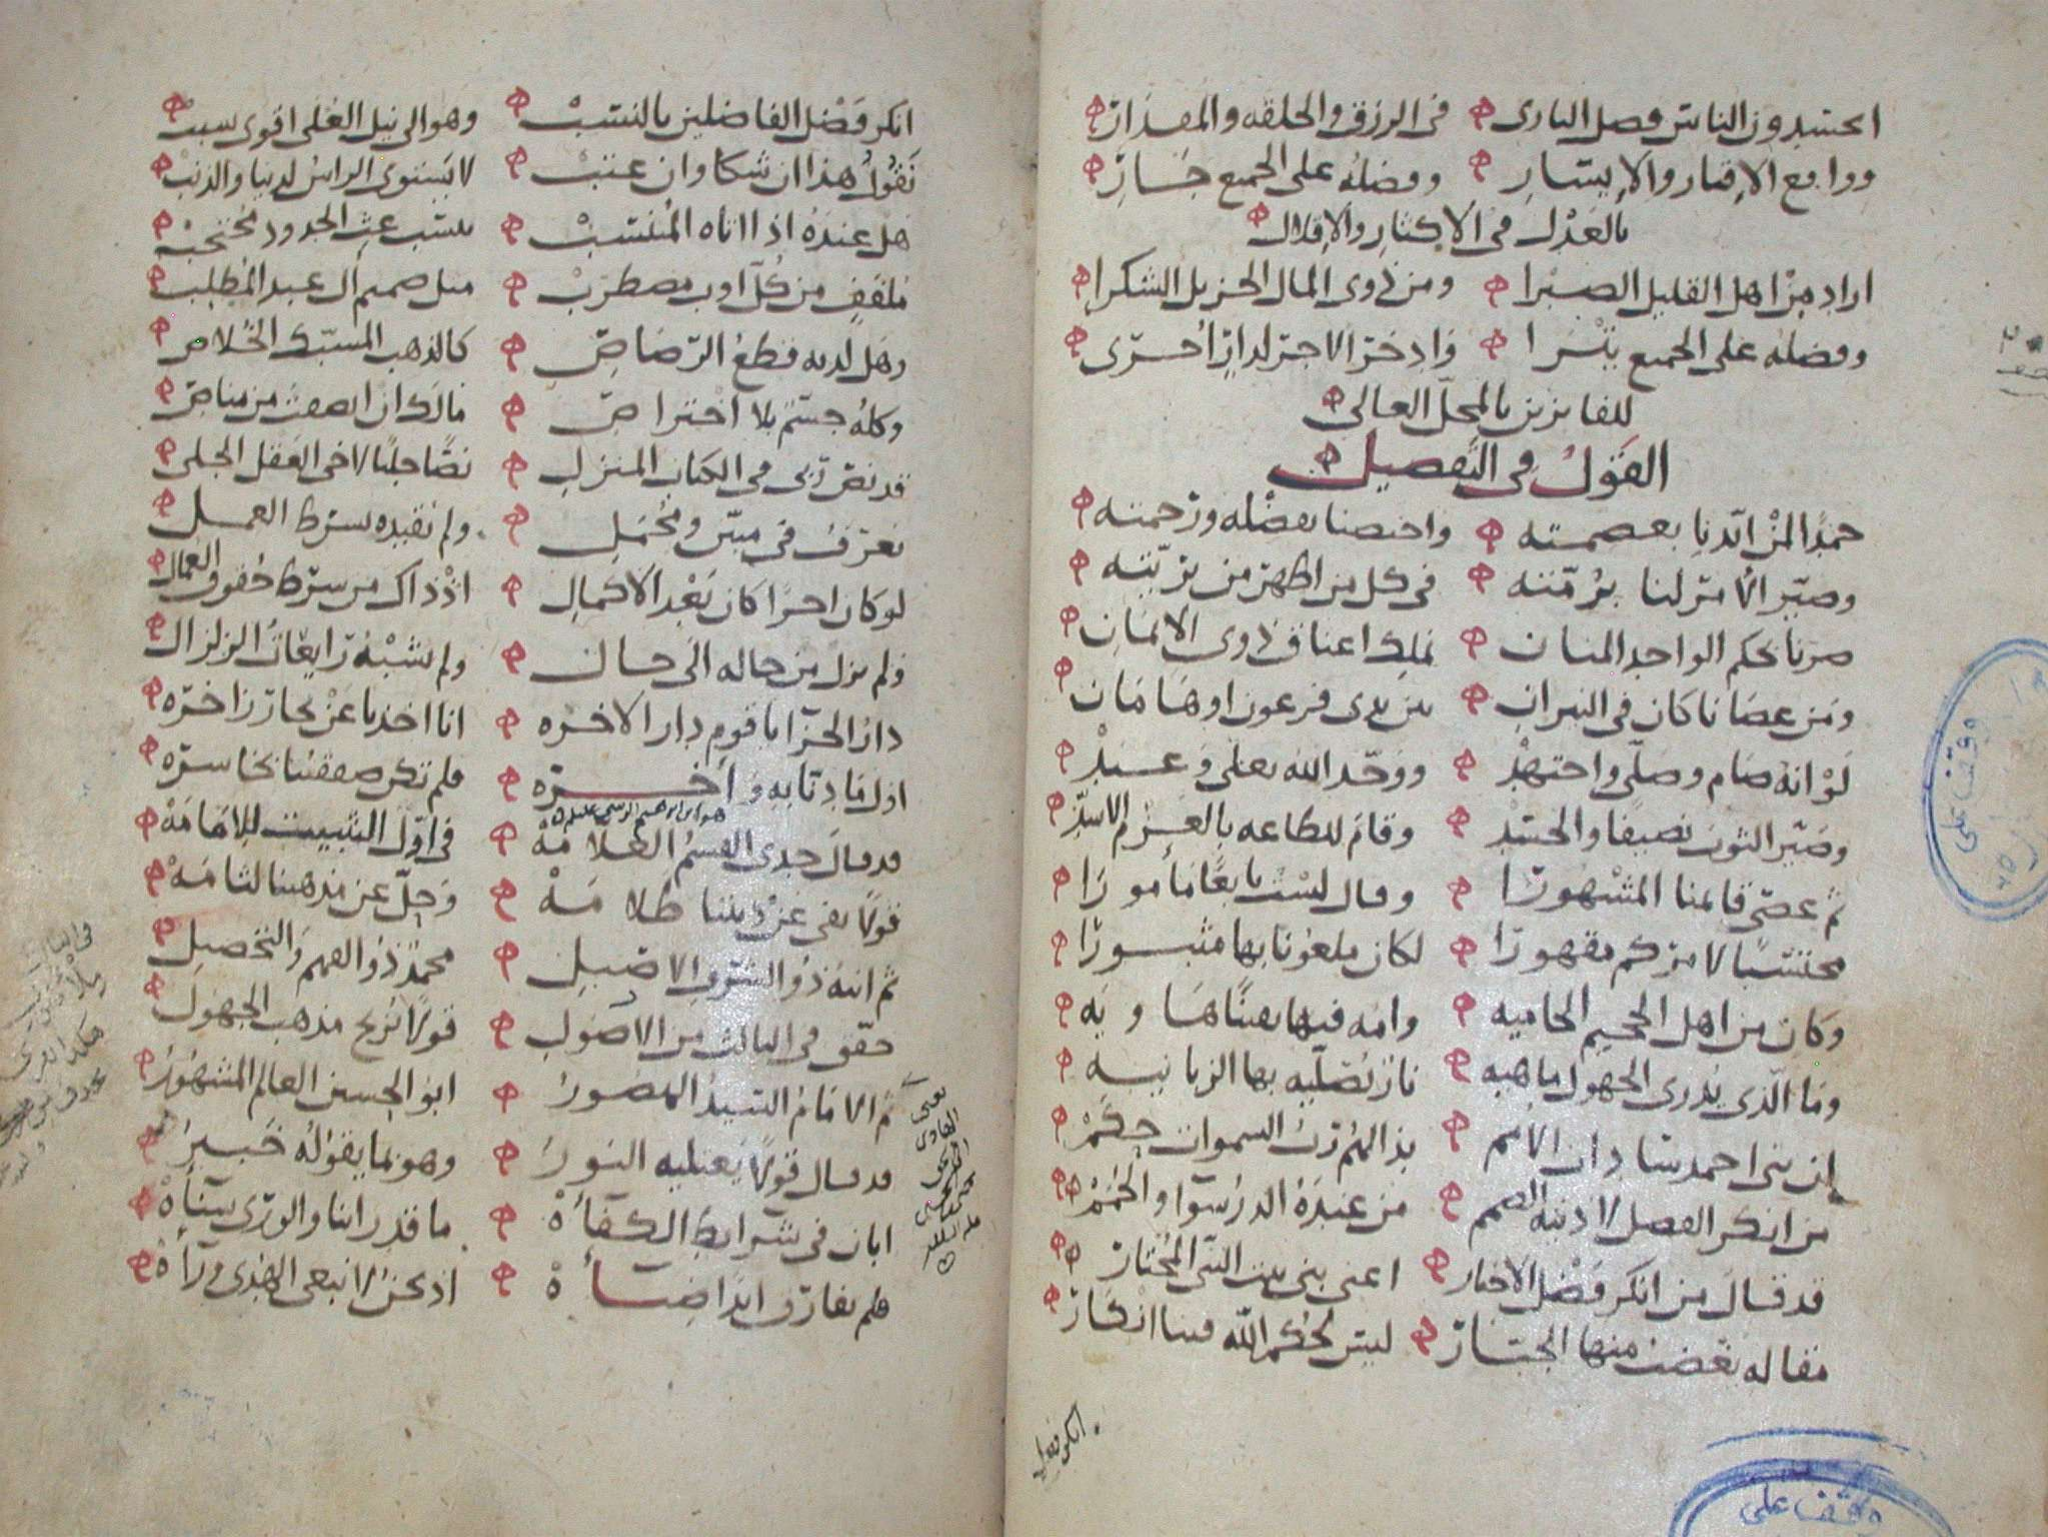 ايحسدون الناس فضل الباري في الرزق والخلقه والمقدار
وواقع الاقتار والايسار وفضله على الجميع جار
بالعدل في الاكثار والاقلال
اراد من اهل القليل الصبرا ومن ذوي المال الجزيل الشكرا
وفضله على الجميع يترا وادخر الاجر لدار اخرى
للفايزين بالمحل العالي
القول في التفصيل
حمدا لمن ايدنا بعصمته واختصنا بفضله ورحمته
وصير الامر لنا برمته في كل من اظهر من بريته
صرنا بحكم الواحد المنان نملك اعناق ذوي الايمان
ومن عصانا كان في النيران بين يدي فرعون او هامان
لو انه صام وصلى واجتهد ووحد الله تعلى وعبد
وصير الثوب نضيفا والجسد وقام للطاعه بالعزم الاسد
ثم عصى قايمنا المشهورا وقال لست تابعا مامورا
محتسبا لامركم مقهورا لكان ملعونا بها مثبورا
وكان من اهل الجحيم الحاميه وامه فيها يقينا هاويه
وما الذي يدري الجهول ماهيه نار تصليه بها الزبانيه
ان بني احمد سادات الامم بذا لهم رب السموات حكم
من انكر الفضل لاذنيه الصمم من عنده الدر سوا والحمم
قد قال من انكر فضل الاخيار اعني بني بنت النبي المختار
مقاله يغضب منها الجبار ليس لحكم الله فينا انكار
انكر فضل
انكر فضل الفاضلين بالنسب وهو الى نيل العلى اقوى سبب
نقول هذا ان شكا وان عتب لا يستوي الراس لدينا والذنب
هل عنده اذا اتاه المنتسب بنسب عبث الجدود محتجب
ملفف من كل اوب مضطرب مثل صميم آل عبد المطلب
وهل لديه قطع الرصاص كالذهب المسبك الخلاص
وكله جسم بلا اختراص مالك ان انصفت من مناص
قد نص ربي في الكتاب المنزل نصا جليا لاخي العقل الجلي
يعرف في مبين ومجمل ولم نقيده بشرط العمل
لو كان اجرا كان بعد الاكمال اذ ذاك من شرط حقوق العمال
ولم يزل من حاله الى حال ولم يشبه رايعات الزلزال
دار الجزا يا قوم دار الاخره انا اخذنا عن بحار زاخره
اول ما دنا به واخره فلم تكن صفقتنا بخاسره
هو ابن ابرهيم الرسي عليلم
قد قال جدي القسم العلامه في اول التثبيت للامامه
قولا نفى عن ديننا ظلامه وجل عن مذهبنا لثامه
ثم ابنه ذو الشرف الاصيل محمد ذو الفهم والتحصيل
حقق في الثالث من الاصول قولا يزيح مذهب الجهول
ثم الامام السيد المنصور ابو الحسين العالم المشهور
قد قال قولا يعتليه النور وهو بما يقوله خبير
ابان في شرايط الكفاه ما قدر ابنا والورى سباه
فلم يفارق ابدا ضياه اذ نحن لا نبغي الهدى وراه
يعني
الهادي
الى الحق
يحيى بن
الحسين
وقف على
وقف على